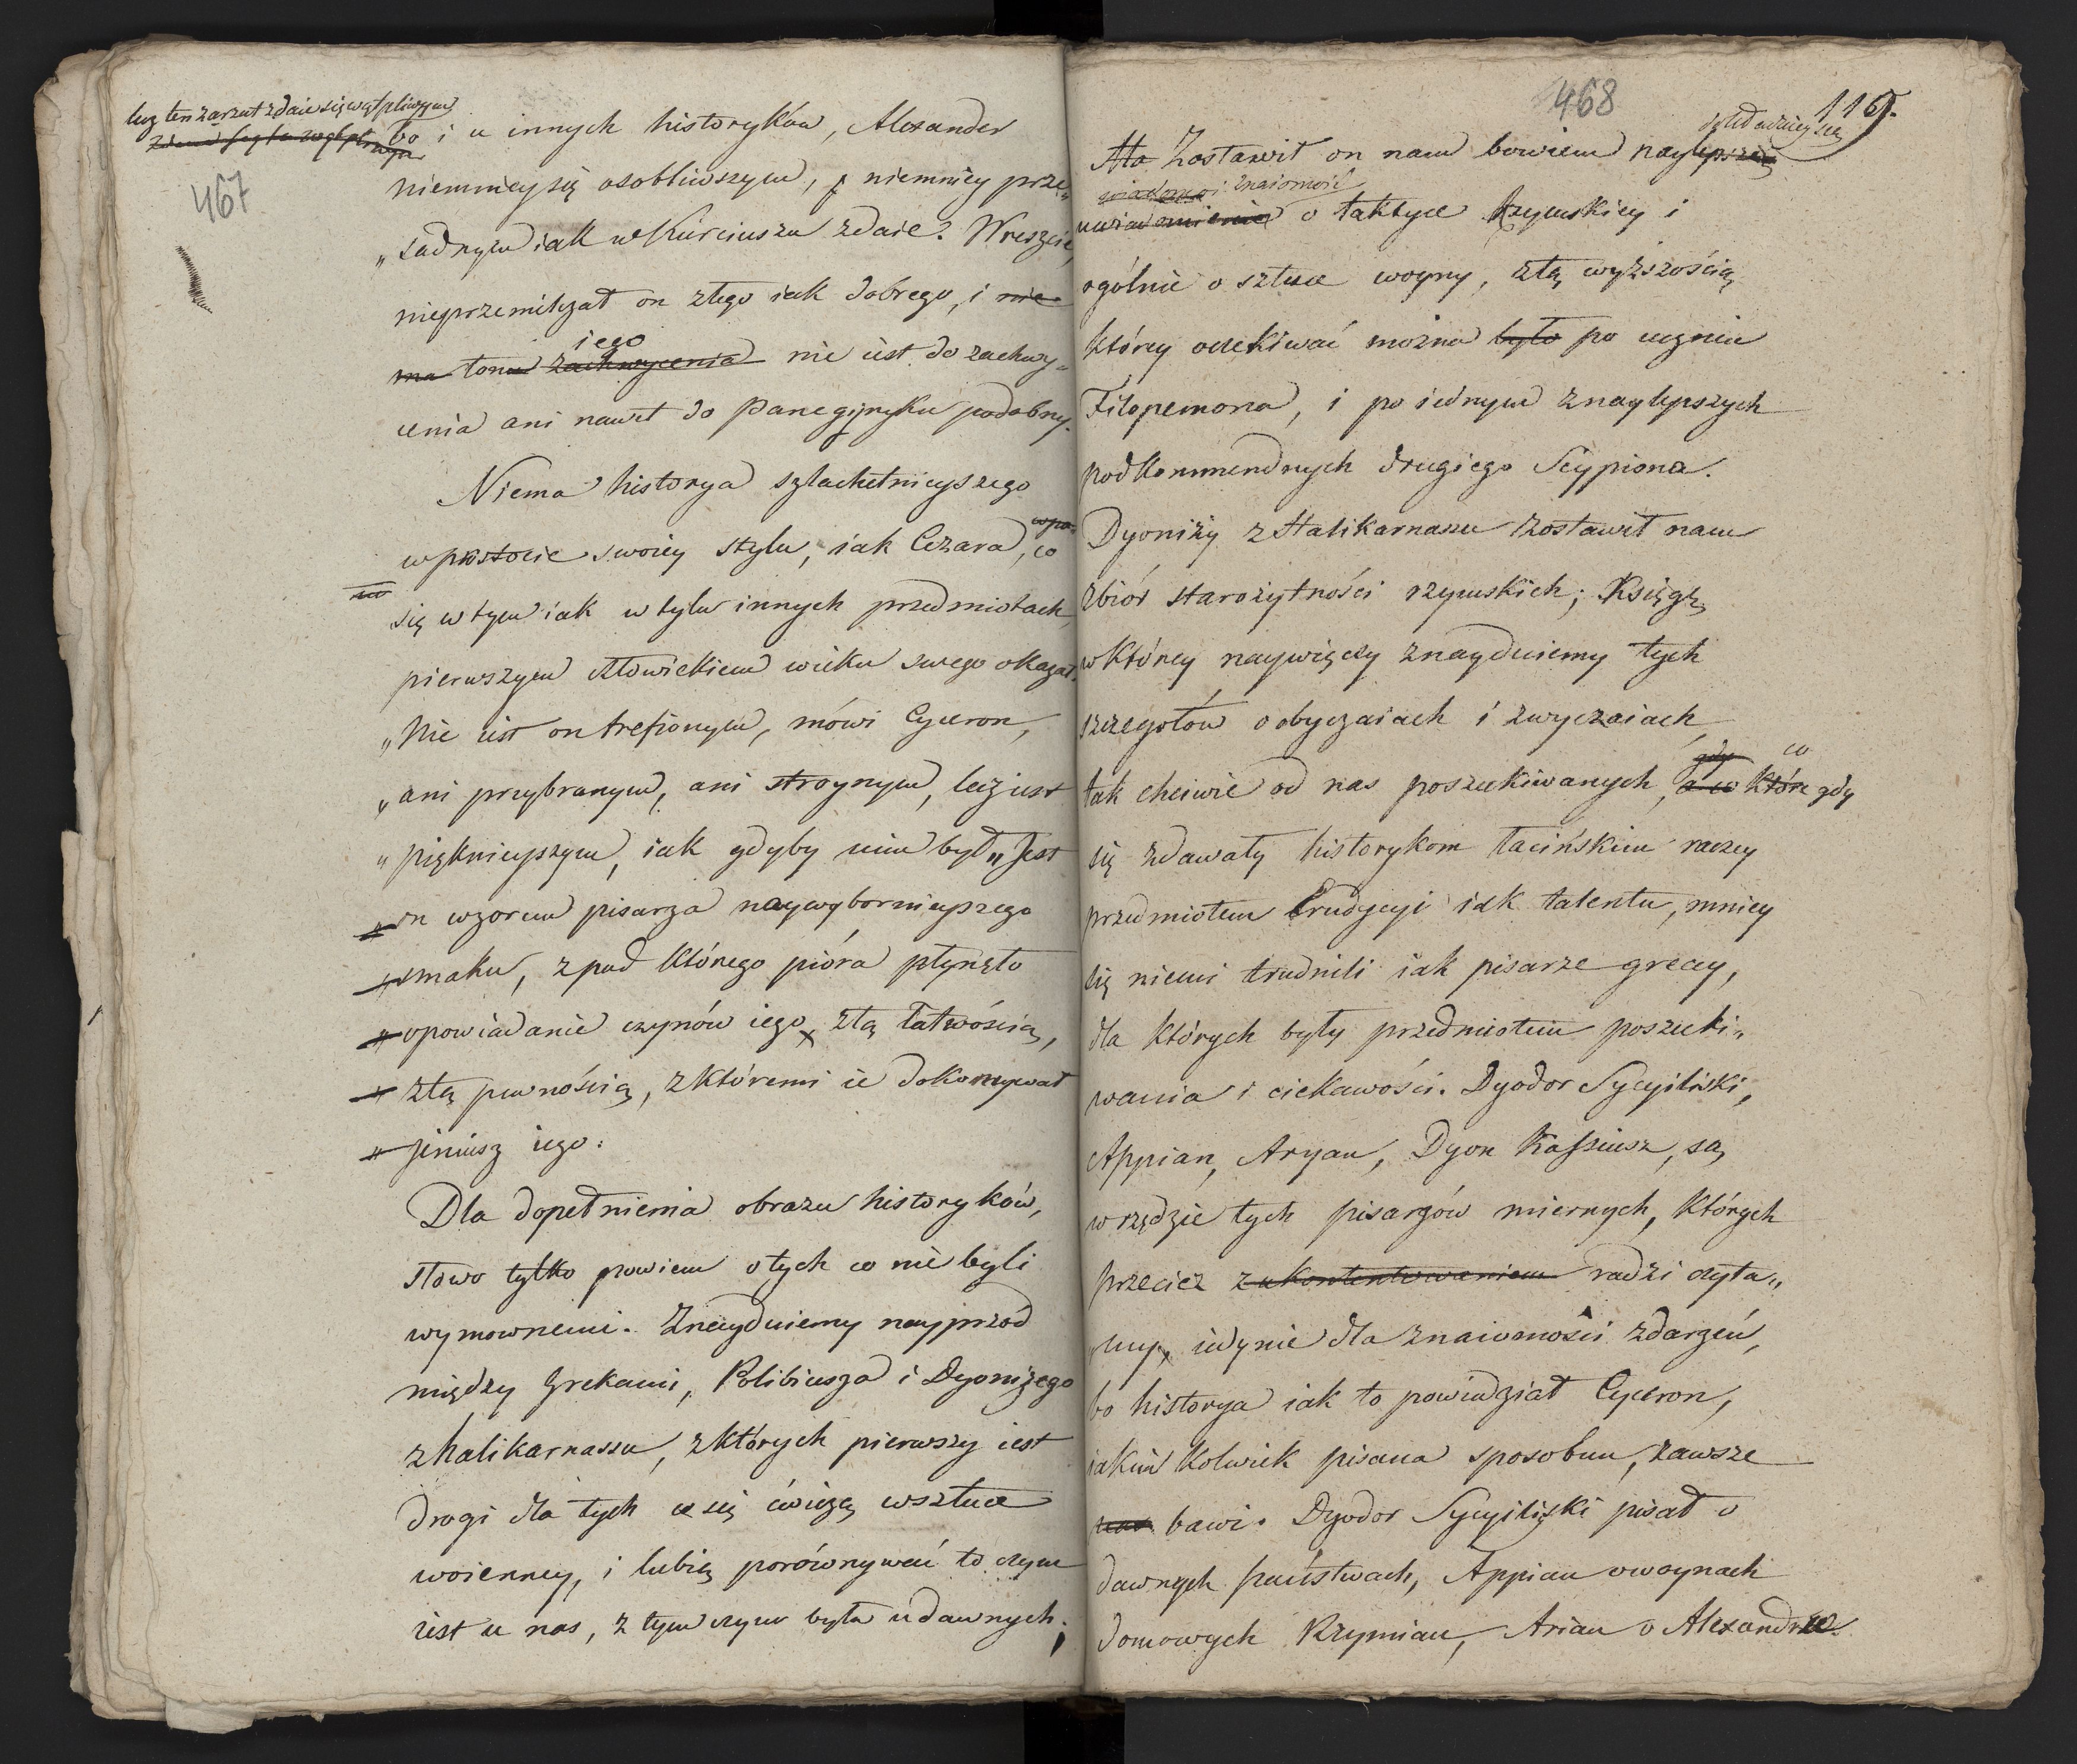 lecz ten zarzut zdaie się wątpliwym
bo i u innych historyków, Alexander
467
niemniey się osobliwszym, i niemniey prze„
„sadnym iak w Kurciuszu zdaie? Wreszcie,
nieprzemilczał on złego iak dobrego, i nie
iego
ma tonu zachwycenia nie iest do zachwy„
cenia ani nawet do Panegijryku podobny.
Niema historya szlachetnieyszego
wpo
w prostocie swoiéy stylu, iak Cezara, co
się w tym iak w tylu innych przedmiotach,
pierwszym człowiekiem wieku swego okazał.
„Nie iest on trefionym, mówi Cyceron,
„ani przybranym, ani stroynym, lecz iest
„pięknieyszym, iak gdyby nim był„ Jest
„on wzorem pisarza naywybornieyszego
„smaku, z pod którego pióra płynęło
„opowiadanie czynów iego, z tą łatwością,
„z tą pewnością, z któremi ie dokonywał
„jeniusz iego.
Dla dopełnienia obrazu historyków,
słowo tylko powiem o tych co nie byli
wymownemi. Znayduiemy nayprzod
między Grekami, Polibiusza i Dyonizego
z halikarnassu, z których pierwszy iest
drogi dla tych co się ćwiczą w sztuce
woienney, i lubią porównywać to czym
iest u nas, z tym czym była u dawnych;
468
119.
dokładnieyszą
Ma Zostawił on nam bowiem naylepszą
wiadomość znaiomość
uwiadomienie o taktyce rzymskiéy i
ogólnie o sztuce woyny, z tą wyższością,
któréy oczekiwać można było po uczniu
Filopemona, i po iednym z naylepszych
podkommendnych drugiego Scypiona.
Dyoniży z Halikarnassu zostawił nam
zbiór starożytności rzymskich; Księgę,
w któréy naywięcéy znayduiemy tych
szczegółów o obyczaiach i zwyczaiach,
gdy co
tak chciwie od nas poszukiwanych, a co które gdy
się zdawały historykom łacińskim raczey
przedmiotem Erudycyi iak talentu, mniey
się niemi trudnili iak pisarze greccy,
dla których były przedmiotem poszuki„
wania i ciekawości. Dyodor Sycyliiski,
Appian, Aryan, Dyon Kassiusz, są
w rzędzie tych pisarzów miernych, których
przecież z ukontentowaniem radzi czyta„
my, iedynie dla znaiomości zdarzeń,
bo historya iak to powiedział Cyceron,
iakim kolwiek pisana sposobem, zawsze
nas bawi. Dyodor Sycyliiski pisał o
dawnych państwach, Appian o woynach
domowych Rzymian, Arian o Alexandrze.